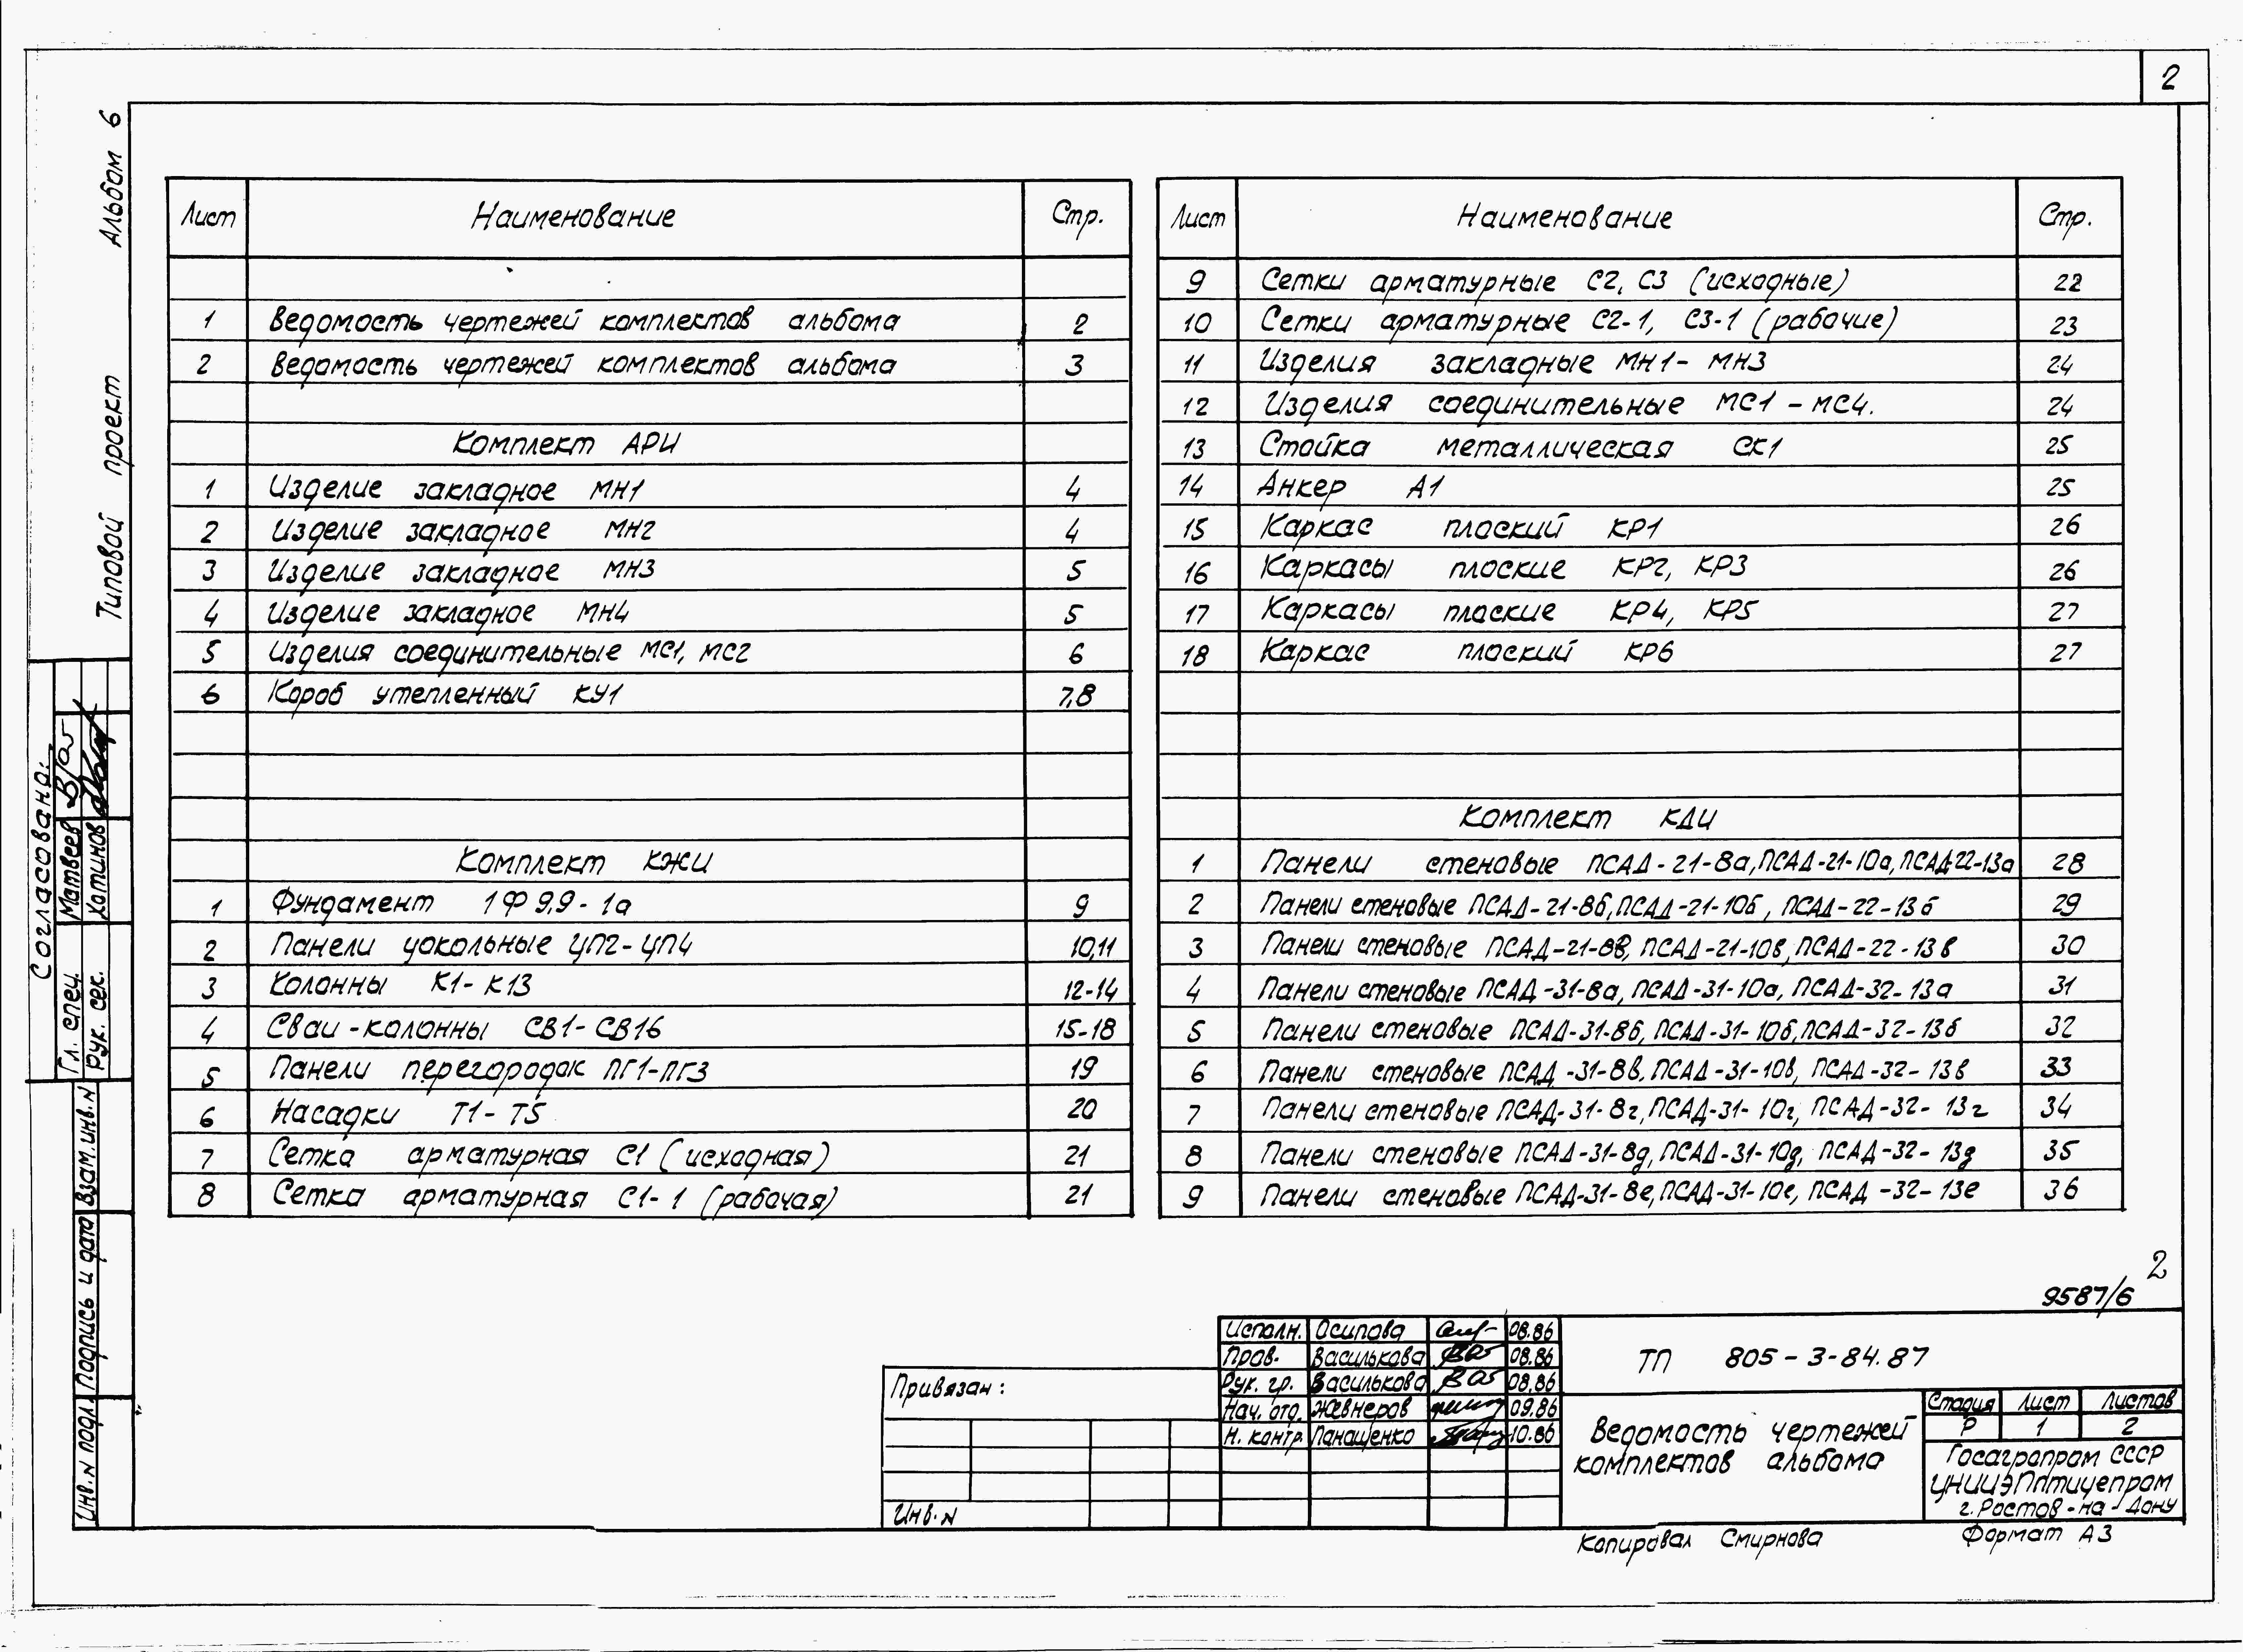 2
Альбом 6
Типовой проект
Лист Наименование Стр.
1 Ведомость чертежей комплектов альбома 2
2 Ведомость чертежей комплектов альбома 3
Комплект АРИ
1 Изделие закладное МН1 4
2 Изделие закладное МН2 4
3 Изделие закладное МН3 5
4 Изделие закладное МН4 5
5 Изделия соединительные МС1, МС2 6
6 Короб утепленный КУ1 7,8
Комплект КЖИ
1 Фундамент 1Ф9.9-1а 9
2 Панели цокольные ЦП2-ЦП4 10,11
3 Колонны К1-К13 12-14
4 Сваи-колонны СВ1-СВ16 15-18
5 Панели перегородок ПГ1-ПГ3 19
6 Насадки Т1-Т5 20
7 Сетка арматурная С1 (исходная) 21
8 Сетка арматурная С1-1 (рабочая) 21
Лист Наименование Стр.
9 Сетки арматурные С2, С3 (исходные) 22
10 Сетки арматурные С2-1, С3-1 (рабочие) 23
11 Изделия закладные МН1-МН3 24
12 Изделия соединительные МС1-МС4. 24
13 Стойка металлическая СК1 25
14 Анкер А1 25
15 Каркас плоский КР1 26
16 Каркасы плоские КР2, КР3 26
17 Каркасы плоские КР4, КР5 27
18 Каркас плоский КР6 27
Комплект КДИ
1 Панели стеновые ПСАД-21-8а, ПСАД-21-10а, ПСАД-22-13а 28
2 Панели стеновые ПСАД-21-8б, ПСАД-21-10б, ПСАД-22-13б 29
3 Панели стеновые ПСАД-21-8в, ПСАД-21-10в, ПСАД-22-13в 30
4 Панели стеновые ПСАД-31-8а, ПСАД-31-10а, ПСАД-32-13а 31
5 Панели стеновые ПСАД-31-8б, ПСАД-31-10б, ПСАД-32-13б 32
6 Панели стеновые ПСАД-31-8в, ПСАД-31-10в, ПСАД-32-13в 33
7 Панели стеновые ПСАД-31-8г, ПСАД-31-10г, ПСАД-32-13г 34
8 Панели стеновые ПСАД-31-8д, ПСАД-31-10д, ПСАД-32-13д 35
9 Панели стеновые ПСАД-31-8е, ПСАД-31-10е, ПСАД-32-13е 36
Согласовано:
Гл. спец. Матвеев
Рук. сек. Хотинов
Взам. инв. N
Подпись и дата
Инв. N подл.
2
9587/6
Привязан:
Инв. N
Исполн. Осипова 08.86
Пров. Василькова 08.86
Рук. гр. Василькова 08.86
Нач. отд. Жевнеров 09.86
Н. контр. Панащенко 10.86
ТП 805-3-84.87
Ведомость чертежей
комплектов альбома
Стадия Лист Листов
Р 1 2
Госагропром СССР
ЦНИИЭПптицепром
г. Ростов-на-Дону
Копировал Смирнова
Формат А3